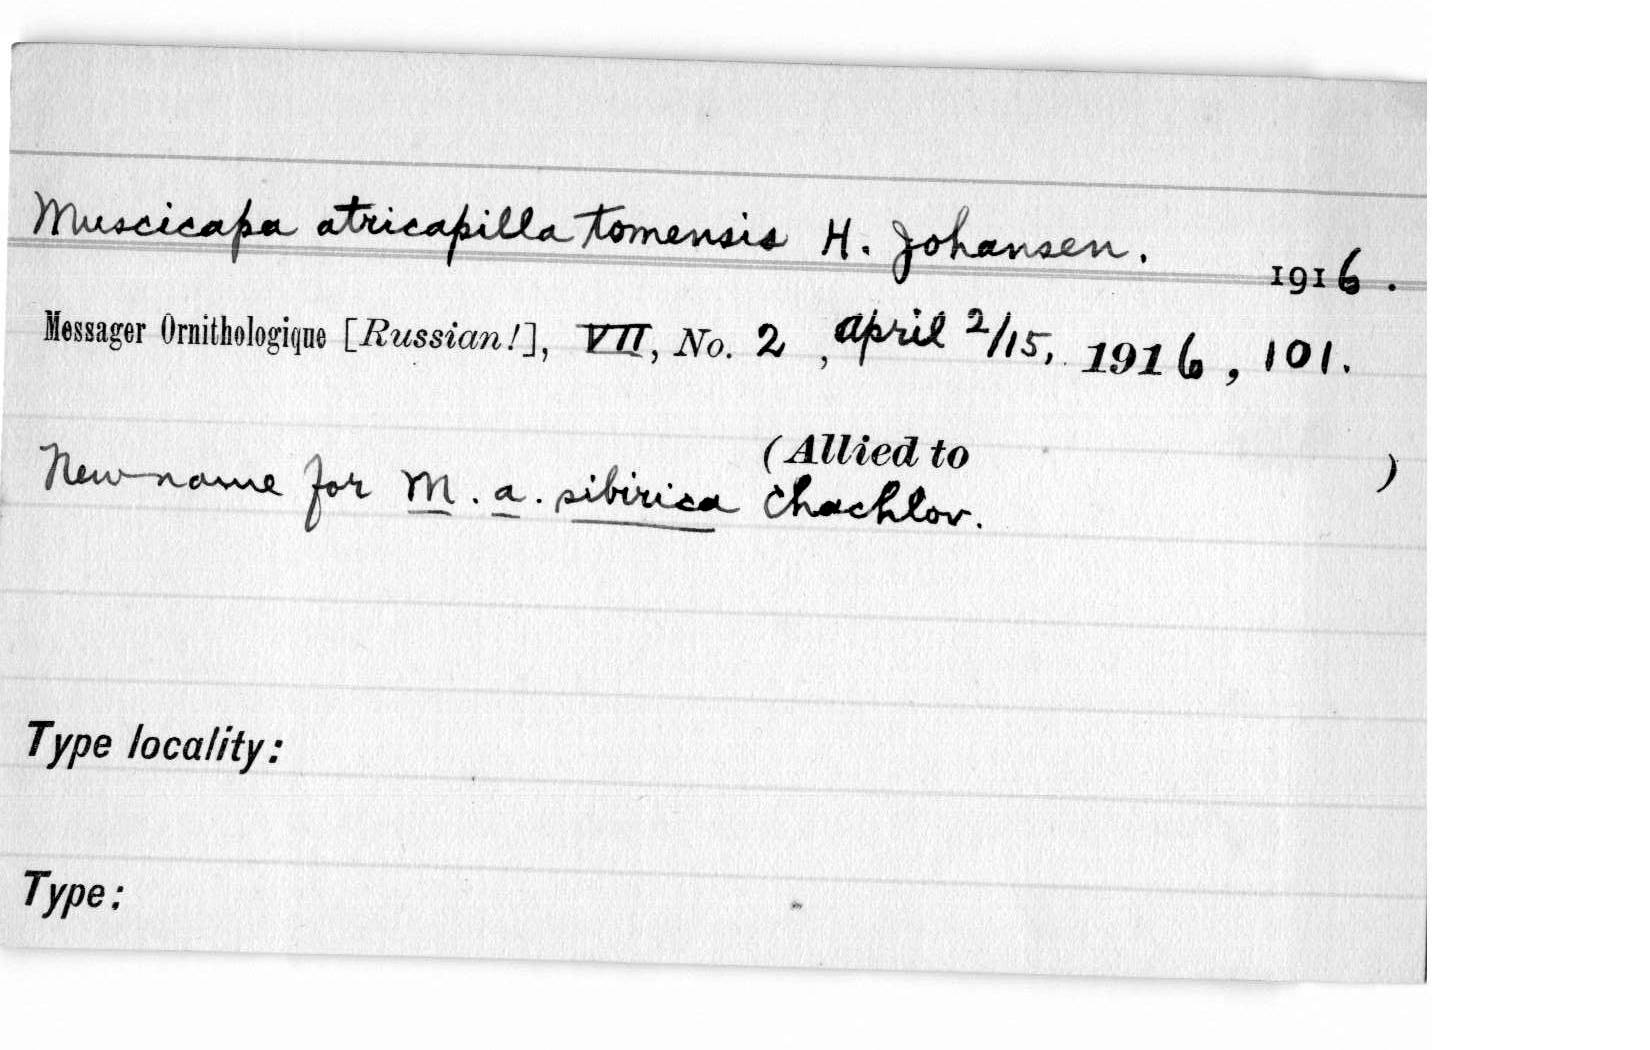 Muscicapa atricapilla tomensis H. Johansen. 1916.
Messager Ornithologique [Russian!], VII, No. 2, April 2/15, 1916, 101.
(Allied to )
New name for M. a. sibirica Chachlov.
Type locality:
Type: